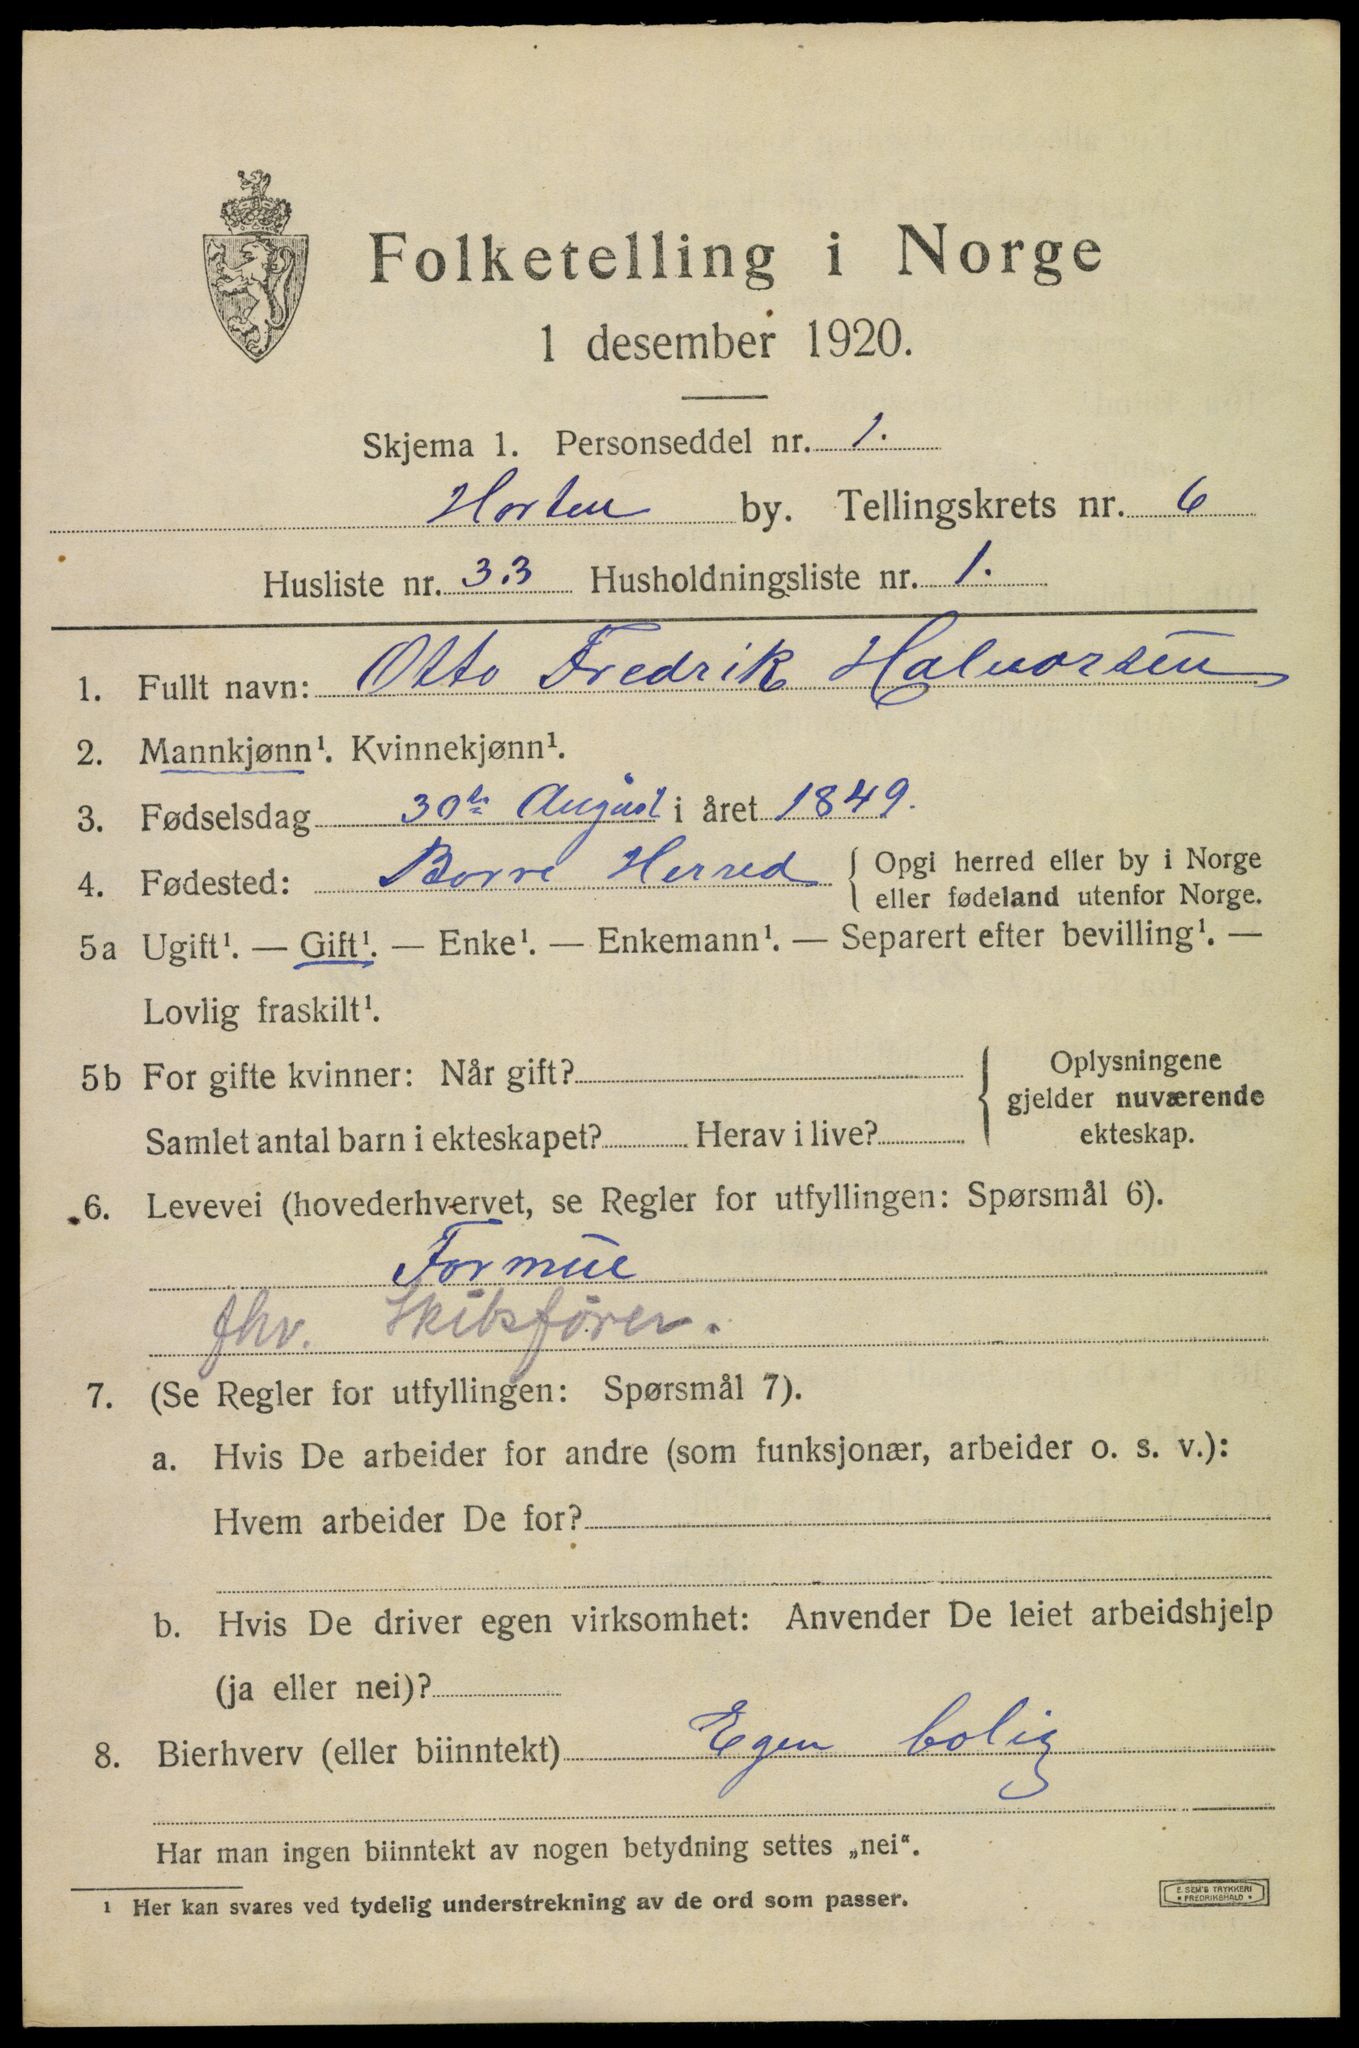 Folketelling i Norge
1 desember 1920.
Skjema 1. Personseddel nr. 1.
Horten by. Tellingskrets nr. 6
Husliste nr. 33 Husholdningsliste nr. 1.
1. Fullt navn: Otto Fredrik Halvorsen
2. Mannkjønn¹. Kvinnekjønn¹.
3. Fødselsdag 30te August i året 1849.
4. Fødested: Borre Herred { Opgi herred eller by i Norge
eller fødeland utenfor Norge.
5a Ugift¹. — Gift¹. — Enke¹. — Enkemann¹. — Separert efter bevilling¹. —
Lovlig fraskilt¹.
5b For gifte kvinner: Når gift? { Oplysningene
gjelder nuværende
Samlet antal barn i ekteskapet? Herav i live? ekteskap.
6. Levevei (hovederhvervet, se Regler for utfyllingen: Spørsmål 6).
Formue
fhv. Skibsfører.
7. (Se Regler for utfyllingen: Spørsmål 7).
a. Hvis De arbeider for andre (som funksjonær, arbeider o. s. v.):
Hvem arbeider De for?
b. Hvis De driver egen virksomhet: Anvender De leiet arbeidshjelp
(ja eller nei)?
8. Bierhverv (eller biinntekt) Egen bolig
Har man ingen biinntekt av nogen betydning settes „nei“.
¹ Her kan svares ved tydelig understrekning av de ord som passer.
E. SEM'S TRYKKERI
• FREDRIKSHALD •